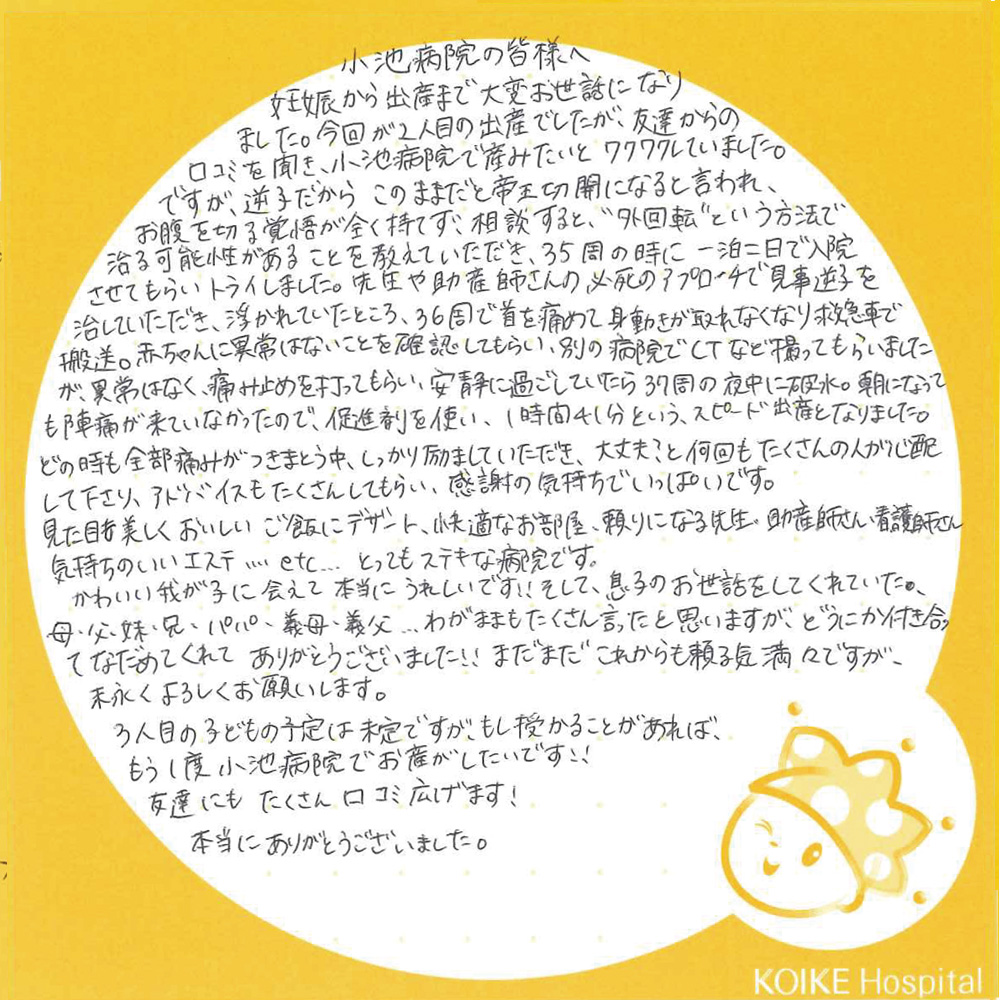 小池病院の皆様へ
妊娠から出産まで大変お世話になり
ました。今回が2人目の出産でしたが、友達からの
口コミを聞き、小池病院で産みたいとワクワクしていました。
ですが、逆子だからこのままだと帝王切開になると言われ、
お腹を切る覚悟が全く持てず、相談すると、"外回転"という方法で
治る可能性があることを教えていただき、35周の時に一泊二日で入院
させてもらいトライしました。先生や助産師さんの必死のアプローチで見事逆子を
治していただき、浮かれていたところ、36周で首を痛めて身動きが取れなくなり救急車で
搬送。赤ちゃんに異常はないことを確認してもらい、別の病院でCTなど撮ってもらいました
が、異常はなく、痛み止めを打ってもらい、安静に過ごしていたら37周の夜中に破水。朝になって
も陣痛が来ていなかったので、促進剤を使い、1時間41分という、スピード出産となりました。
どの時も全部痛みがつきまとう中、しっかり励ましていただき、大丈夫?と何回もたくさんの人が心配
して下さり、アドバイスもたくさんしてもらい、感謝の気持ちでいっぱいです。
見た目も美しくおいしいご飯にデザート、快適なお部屋、頼りになる先生、助産師さん、看護師さん
気持ちのいいエステ....etc... とってもステキな病院です。
かわいい我が子に会えて本当にうれしいです!!そして、息子のお世話をしてくれていた。、
母・父・妹・兄・パパ・義母・義父...わがままもたくさん言ったと思いますが、どうにか付き合っ
てなだめてくれてありがとうございました!!まだまだこれからも頼る気満々ですが、
末永くよろしくお願いします。
3人目の子どもの予定は未定ですが、もし授かることがあれば、
もう1度小池病院でお産がしたいです!!
友達にもたくさん口コミ広げます!
本当にありがとうございました。
KOIKE Hospital